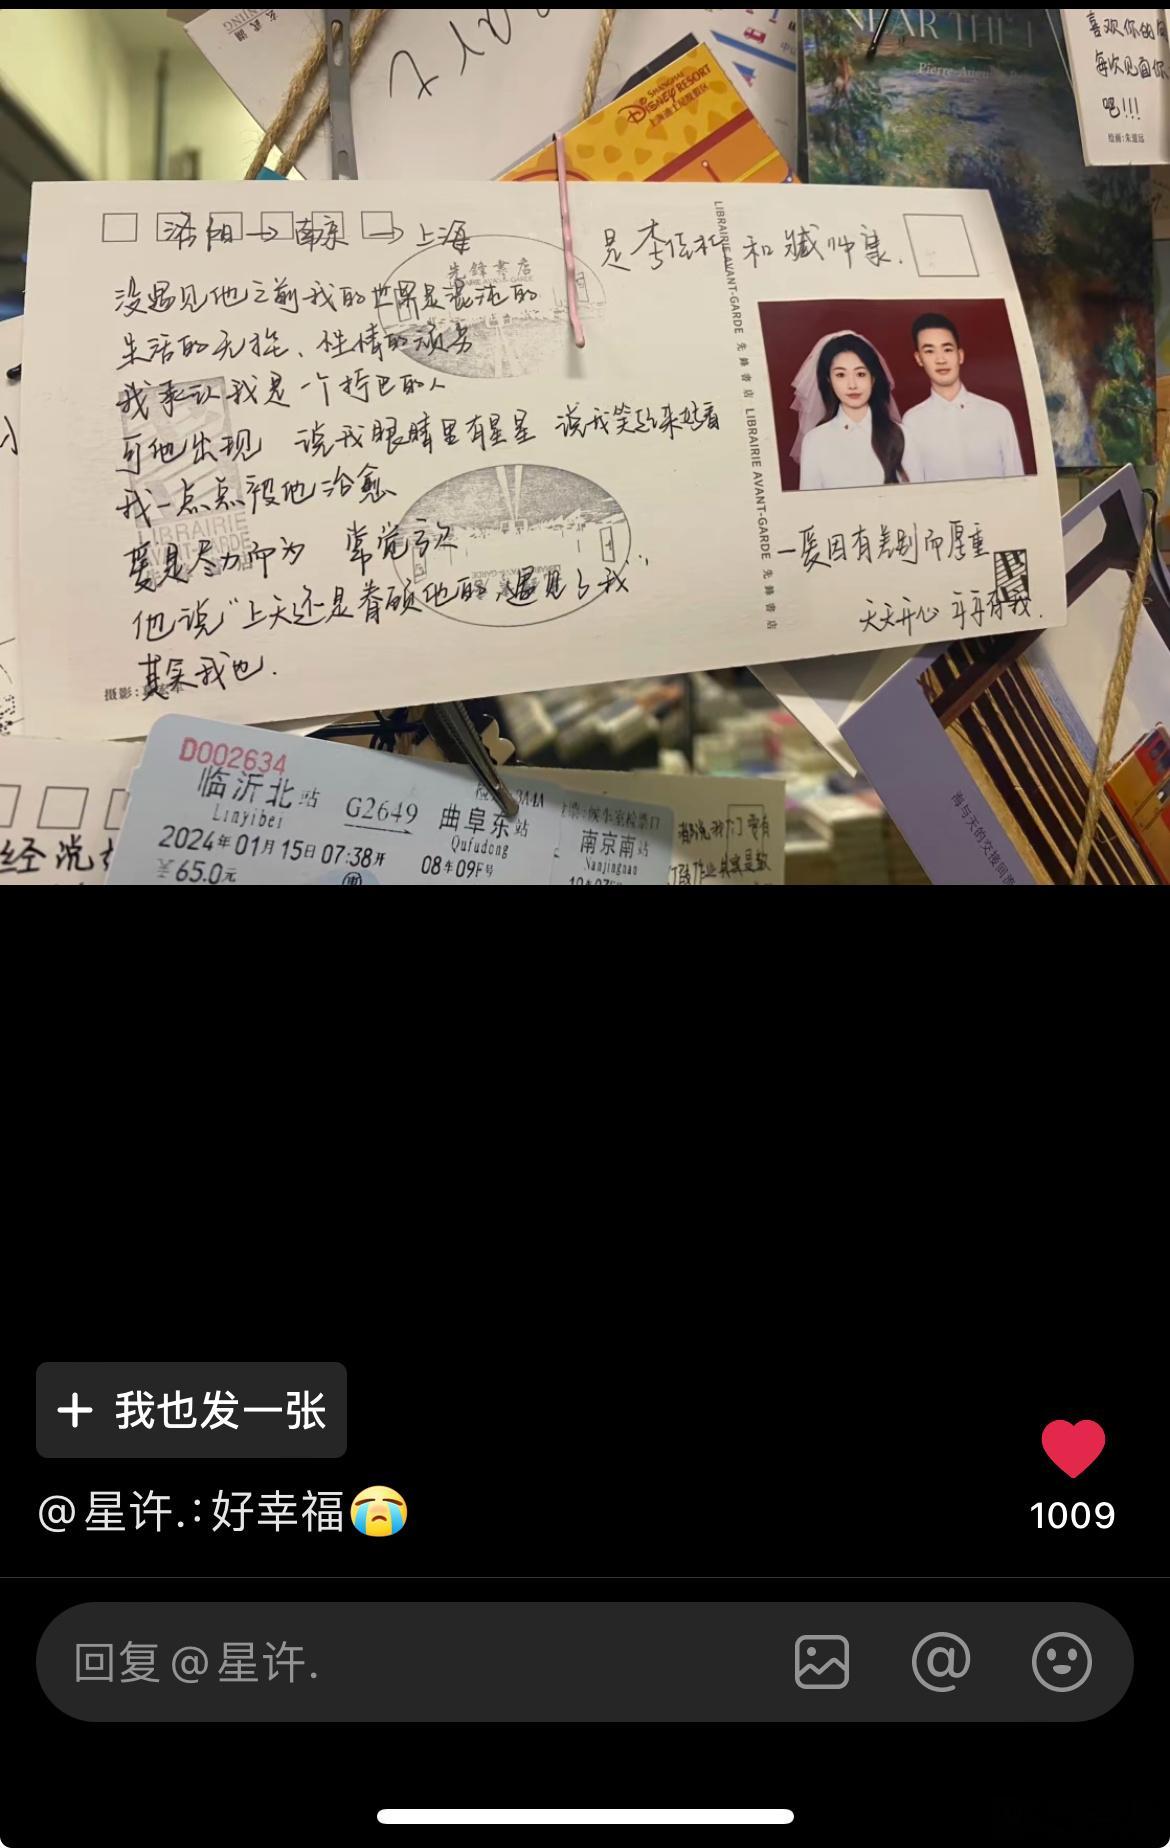 玄武湖
SHANGHAI
DISNEY RESORT
上海迪士尼度假区
NEAR THE
喜欢你的
每次见面你
吧!!!
绘画:朱道远
洛阳→南京→上海
没遇见他之前我的世界是混沌的
生活的无拖、性情的顽劣
我承认我是一个拧巴的人
可他出现 说我眼睛里有星星 说我笑起来好看
我一点点被他治愈
爱是尽力而为 常觉亏欠
他说“上天还是眷顾他的,遇见了我”
其实我也.
摄影:
先鋒書店
LIBRAIRIE AVANT-GARDE
LIBRAIRIE AVANT-GARDE 先鋒書店 LIBRAIRIE AVANT-GARDE 先鋒書店
和臧帅豪.
一爱因有差别而厚重
天天开心 年年有我.
D002634
临沂北站 G2649 曲阜东站
Linyibei Qufudong
2024年01月15日07:38开 08车09F号
￥65.0元
南京南站
Nanjingnan
海与天的交接间
我也发一张
@星许.:好幸福😭
1009
回复@星许.